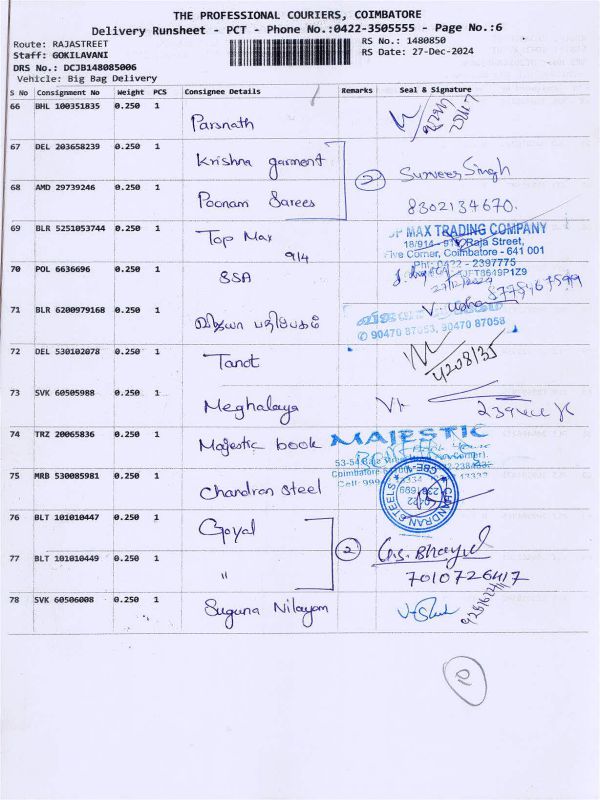 THE PROFESSIONAL COURIERS, COIMBATORE
Delivery Runsheet - PCT - Phone No.:0422-3505555 - Page No.:6
Route: RAJASTREET
Staff: GOKILAVANI
DRS No.: DCJB148085006
Vehicle: Big Bag Delivery
RS No.: 1480850
RS Date: 27-Dec-2024
S No Consignment No Weight PCS Consignee Details Remarks Seal & Signature
66 BHL 100351835 0.250 1 Parsnath
67 DEL 203658239 0.250 1 Krishna garment
2 Surveer Singh
68 AMD 29739246 0.250 1 Poonam Sarees 8302134670.
69 BLR 5251053744 0.250 1 Top Max
9/4
TOP MAX TRADING COMPANY
18/914 - 919, Raja Street,
Five Corner, Coimbatore - 641 001
PH: 0422 - 2397775
70 POL 6636696 0.250 1 SSA
27/12/2024
71 BLR 6200979168 0.250 1 விஜயா பதிப்பகம் V. Usha
90470 87053, 90470 87058
72 DEL 530102078 0.250 1 Tanot
73 SVK 60505988 0.250 1 Meghalaya
74 TRZ 20065836 0.250 1 Majestic book
MAJESTIC
75 MRB 530085981 0.250 1 Chandran Steel
CHANDRAN STEELS CBE-1
76 BLT 101010447 0.250 1 Goyal
2
77 BLT 101010449 0.250 1 "
7010726417
78 SVK 60506008 0.250 1 Suguna Nilayam
10